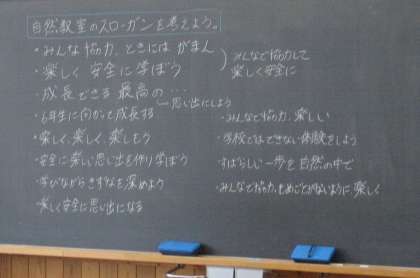 自然教室のスローガンを考えよう。
・みんな協力、ときには がまん
・楽しく 安全に 学ぼう
みんなで協力して
楽しく安全に
・成長できる 最高の…
思い出にしよう
・6年生に向かって成長する
・楽しく、楽しく、楽しもう
・安全に楽しい思い出を作り学ぼう
・学びながらきずなを深めよう
・楽しく安全に思い出になる
・みんなで協力、楽しい
・学校ではできない体験をしよう
・すばらしい一歩を自然の中で
・みんなで協力、もめごとがないように楽しく